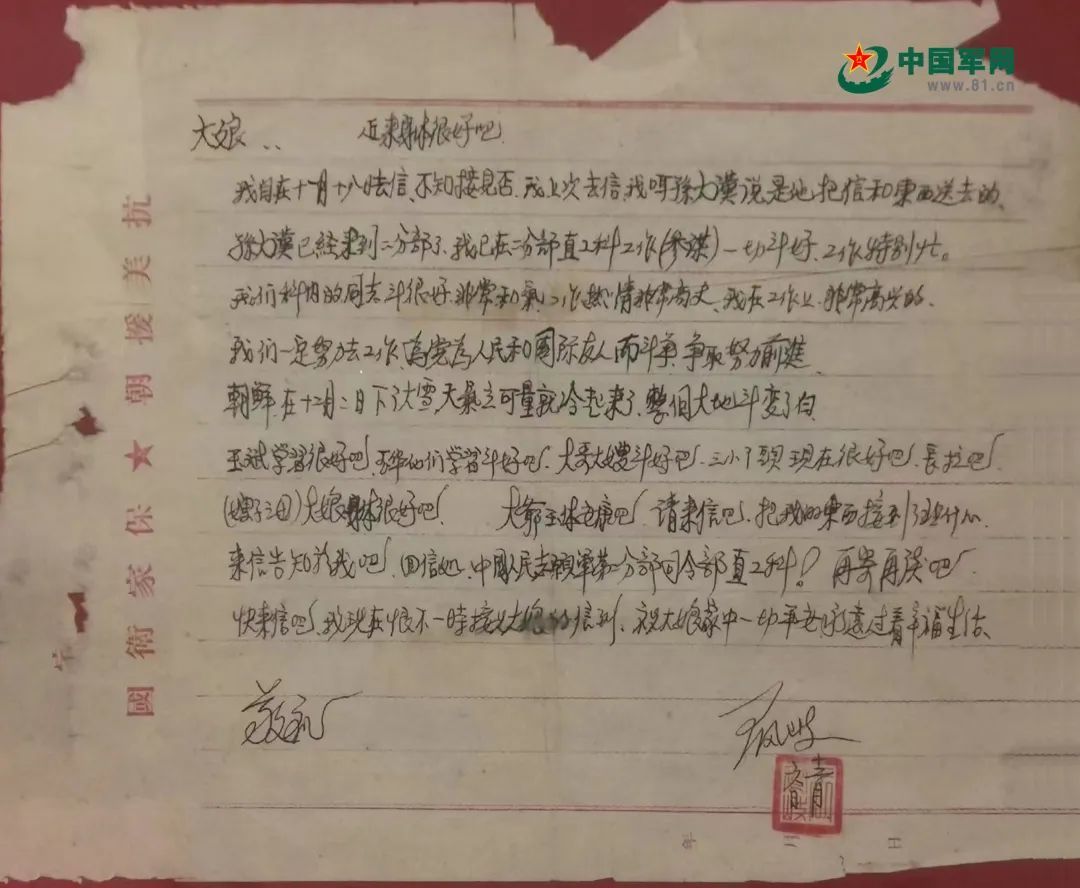 中国军网
www.81.cn
抗美援朝★保家衛國
大娘：近来身体很好吧
我自在十一月十八日去信、不知接見否、我上次去信、我叫孫大漢說是他把信和東西送去的、
孫大漢已經来到二分部了、我已在二分部直工科工作(参謀)一切斗好、工作特别忙。
我们科内的同志斗很好、非常和氣、工作热情非常高丈、我在工作上、非常高兴的、
我们一定努力去工作、為党為人民和国际友人而斗争、争取努力前進、
朝鮮在十二月二日下了大雪、天氣立可量就冷起来了、整個大地斗变了白、
玉斌学習很好吧、 他们学習斗好吧、大哥大嫂斗好吧、三小丫頭現在很好吧、長拉吧
大娘身体很好吧 大爺玉体 康吧、請来信吧、把我的東西接到
来信告知於我吧、回信処、中國人民志願軍第二分部司令部直工科！再寄再談吧
快来信吧、我現在恨不一時接 大娘的信到、祝大娘家中一切平安永遠过着幸福生活、
敬礼
年 月 日